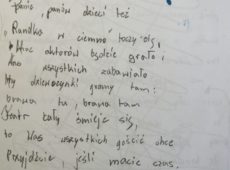 panie, panów dzieci też
"Randka w ciemno" toczy się,
Moc aktorów będzie grało i
Ano wszystkich zabawiało
My dziewczynki gramy tam:
brawa tu, brawa tam
Teatr cały śmieje się,
to Was wszystkich gościć chce
Przyjdźcie, jeśli macie czas.